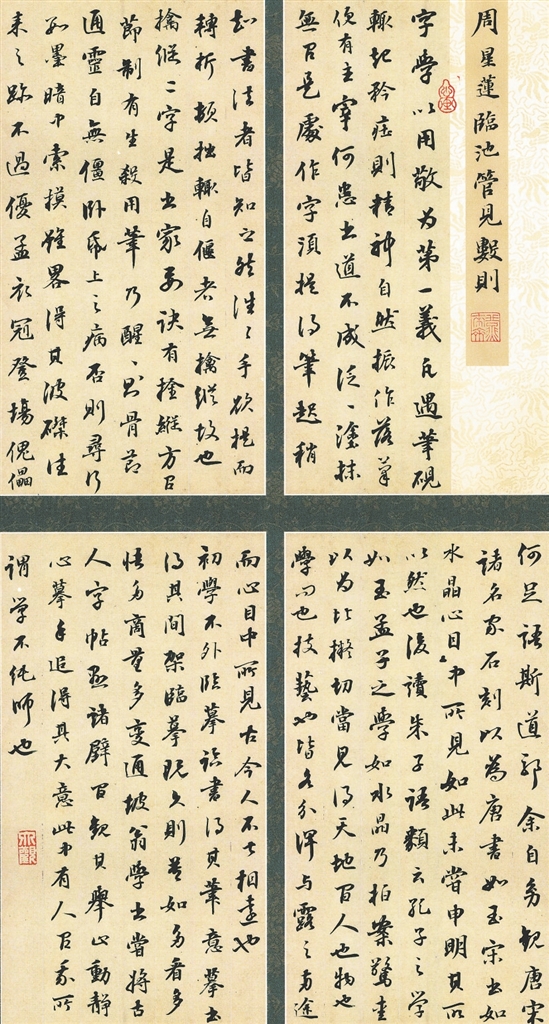 周星蓮臨池管見數則
字學以用敬为第一義凡遇筆硯
輒起矜莊則精神自然振作落筆
便有主宰何患书道不成泛〻塗抹
無有是處作字須提得筆起稍
知書法者皆知之然往〻手欲提而
轉折頓拙輒自偃者無擒縱故也
擒縱二字是书家要訣有擒縱方有
節制有生殺用筆乃醒〻則骨節
通靈自無僵卧紙上之病否則尋行
數墨暗中索摸雖略得其波磔往
来之跡不過優孟衣冠登場傀儡
何足語斯道耶余自幼觀唐宋
諸名家石刻以為唐書如玉宋书如
水晶心目中所見如此未嘗申明其所
以然也後讀朱子語類云孔子之學
如玉孟子之學如水晶乃拍案驚喜
以为比擬切當見得天地間人也物也
學问也技藝也皆各分渾與露之兩途
而心目中所見古今人不甚相遠也
初學不外臨摹臨書得其筆意摹书
得其間架臨摹既久則莫如多看多
悟多商量多變通坡翁學书嘗將古
人字帖懸諸壁間觀其舉止動靜
心摹手追得其大意此中有人有我所
謂学不純師也